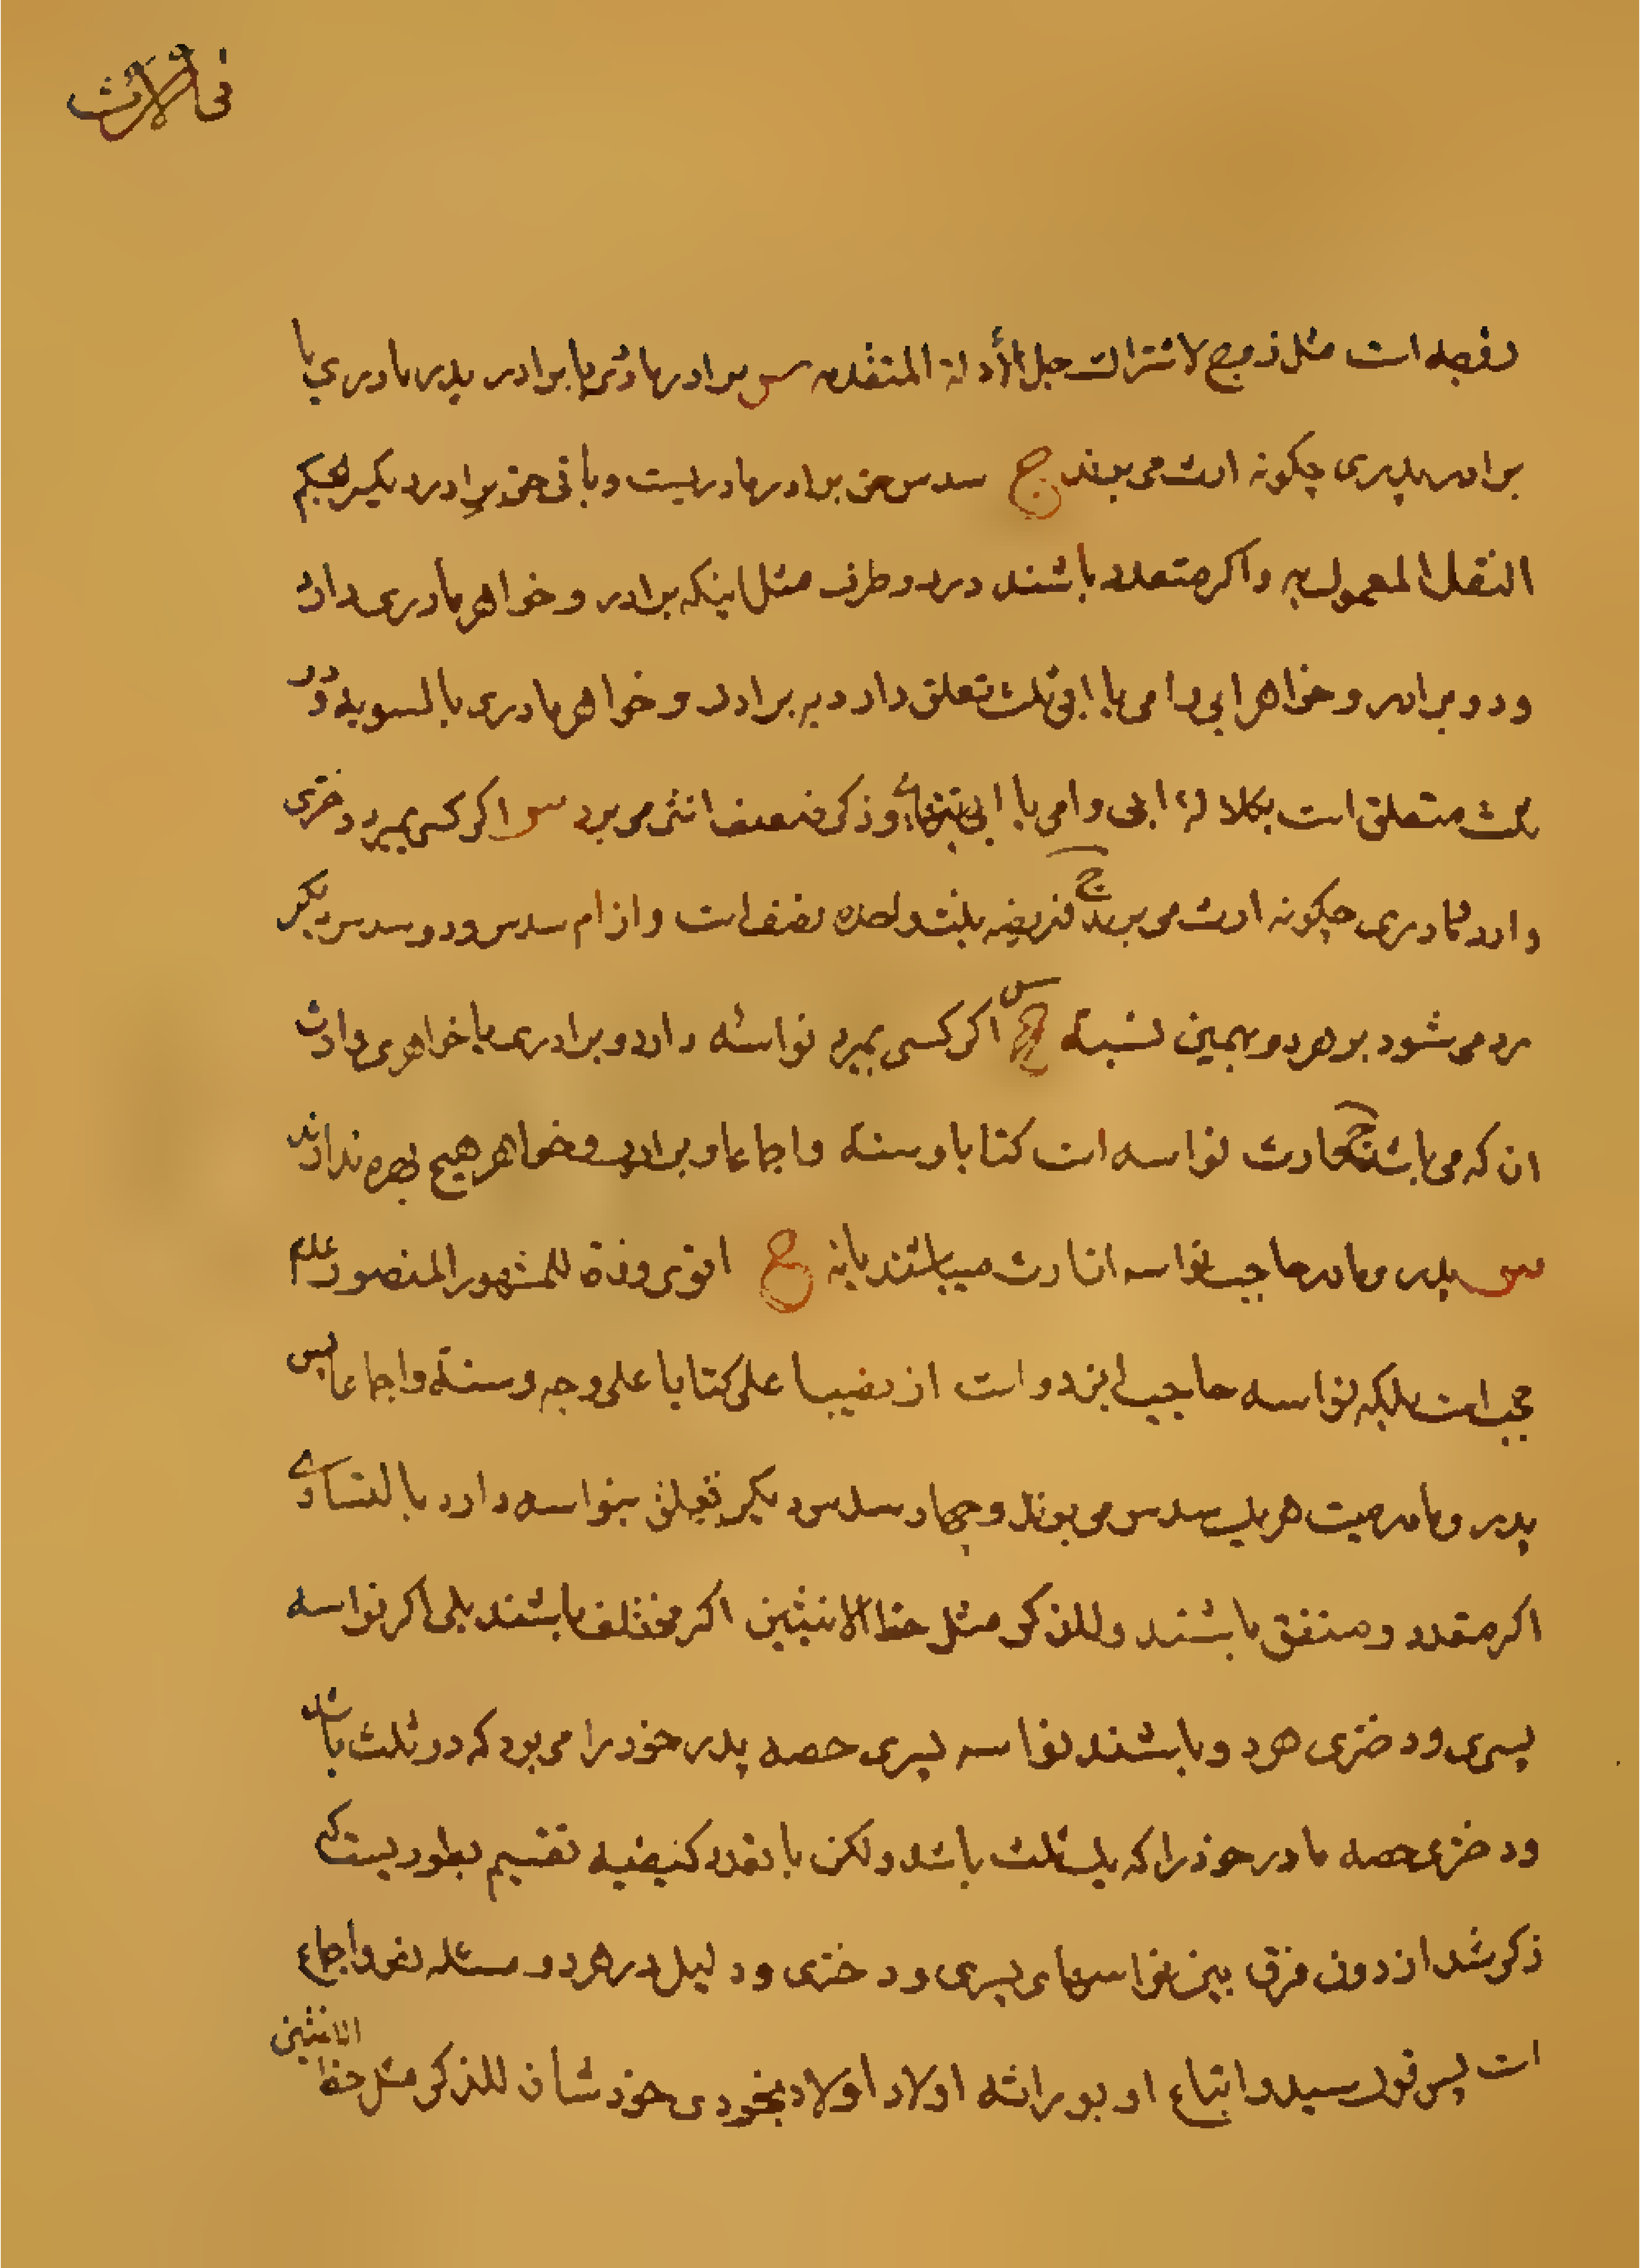 فی الارث
دفصه است مثل ذبیح لاشتراك جل الأدلة المتقدمه س برادر مادری با برادر پدر مادری یا
برادر پدری چکونه ارث می برند ج سدس حق برادر مادریست و باقی حق برادر دیکر بحکم
النقل المعمول به و اکر متعدد باشند در دو طرف مثل اینکه برادر و خواهر مادری دارد
و دو برادر و خواهر ابی و امی یا ابی ثلث تعلق دارد به برادر و خواهر مادری بالسویه و دو
ثلث متعلق است بکلاله ابی و امی یا ابی تنهائی و ذکر ضعف انثی می برد س اکر کسی بمیرد دختری
دارد و مادری چکونه ارث می برند ج فریضه بنت واحده نصف است و از ام سدس و دو سدس دیکر
رد می شود بر هر دو بهمین نسبة س اکر کسی بمیرد نواسه دارد و برادری یا خواهری وارث
ان که می باشد ج وارث نواسه است کتابا و سنة و اجماعا و برادر و خواهر هیچ بهره ندارند
س پدر و مادر حاجب نواسه از ارث میباشند یا نه ج اقوی وفاقا للمشهور المنصور عدم
حجب است بلکه نواسه حاجب این دو است از نصیب اعلی کتابا علی وجه و سنة و اجماعا پس
پدر و مادر میت هر یك سدس می برند و چهار سدس دیکر تعلق بنواسه دارد بالتساوی
اکر متعدد و متفق باشند و للذکر مثل حظ الانثیین اکر مختلف باشند بلی اکر نواسه
پسری و دختری هر دو باشند نواسه پسری حصه پدر خود را می برد که دو ثلث باشد
و دختری حصه مادر خود را که یك ثلث باشد و لکن با تعدد کیفیه تقسیم بطوریست که
ذکر شد از دون فرق بین نواسهای پسری و دختری و دلیل در هر دو مسئله نص و اجماع
است پس قول سید و اتباع او بوراثه اولاد اولاد بخودی خود شان للذکر مثل حظ الانثیین